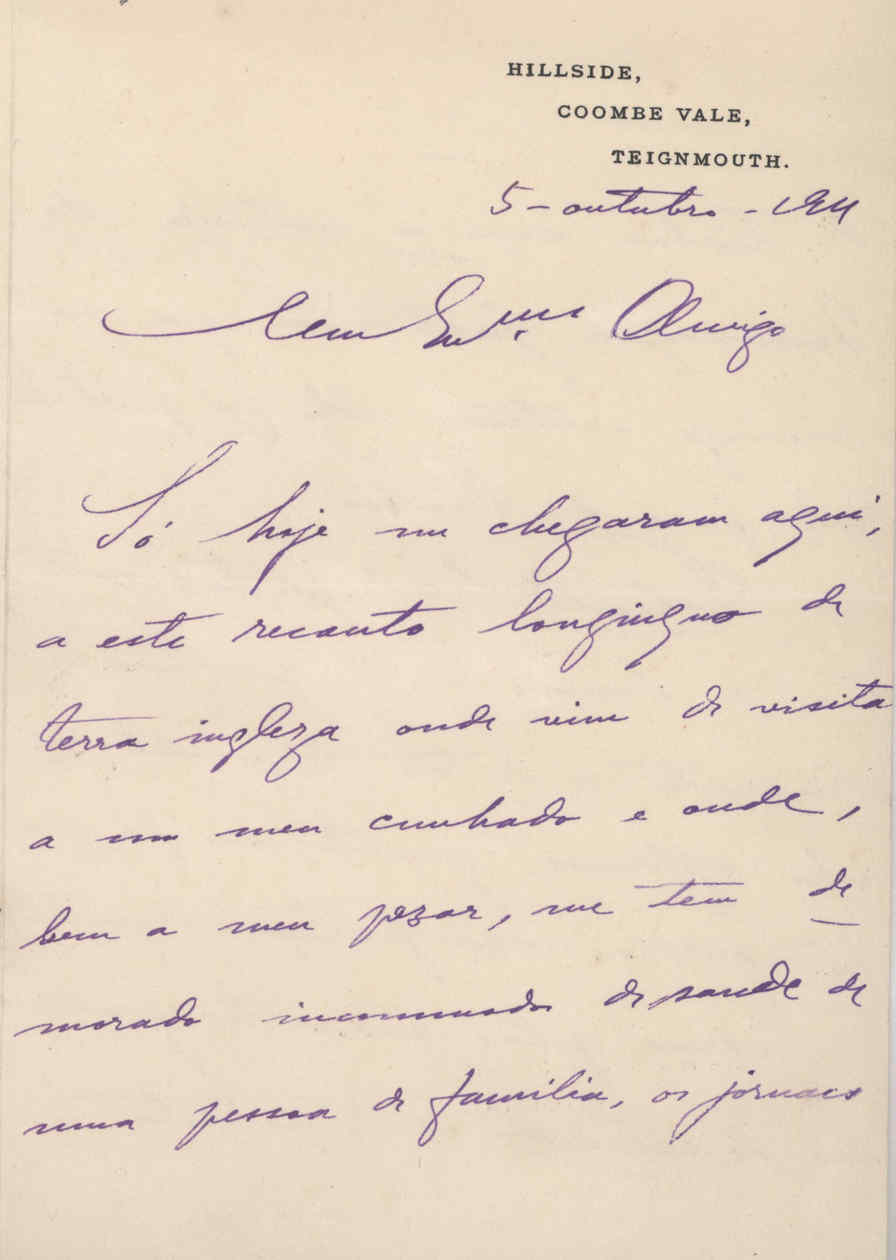 HILLSIDE,
COOMBE VALE,
TEIGNMOUTH.
5 - outubro - 1911
Meu Exmo. Amigo
Só hoje me chegaram aqui,
a este recanto longinquo de
terra ingleza onde vim de visita
a um meu cunhado e onde,
bem a meu pezar, me tem de
morado incommodo de saude de
uma pessoa de familia, os jornaes